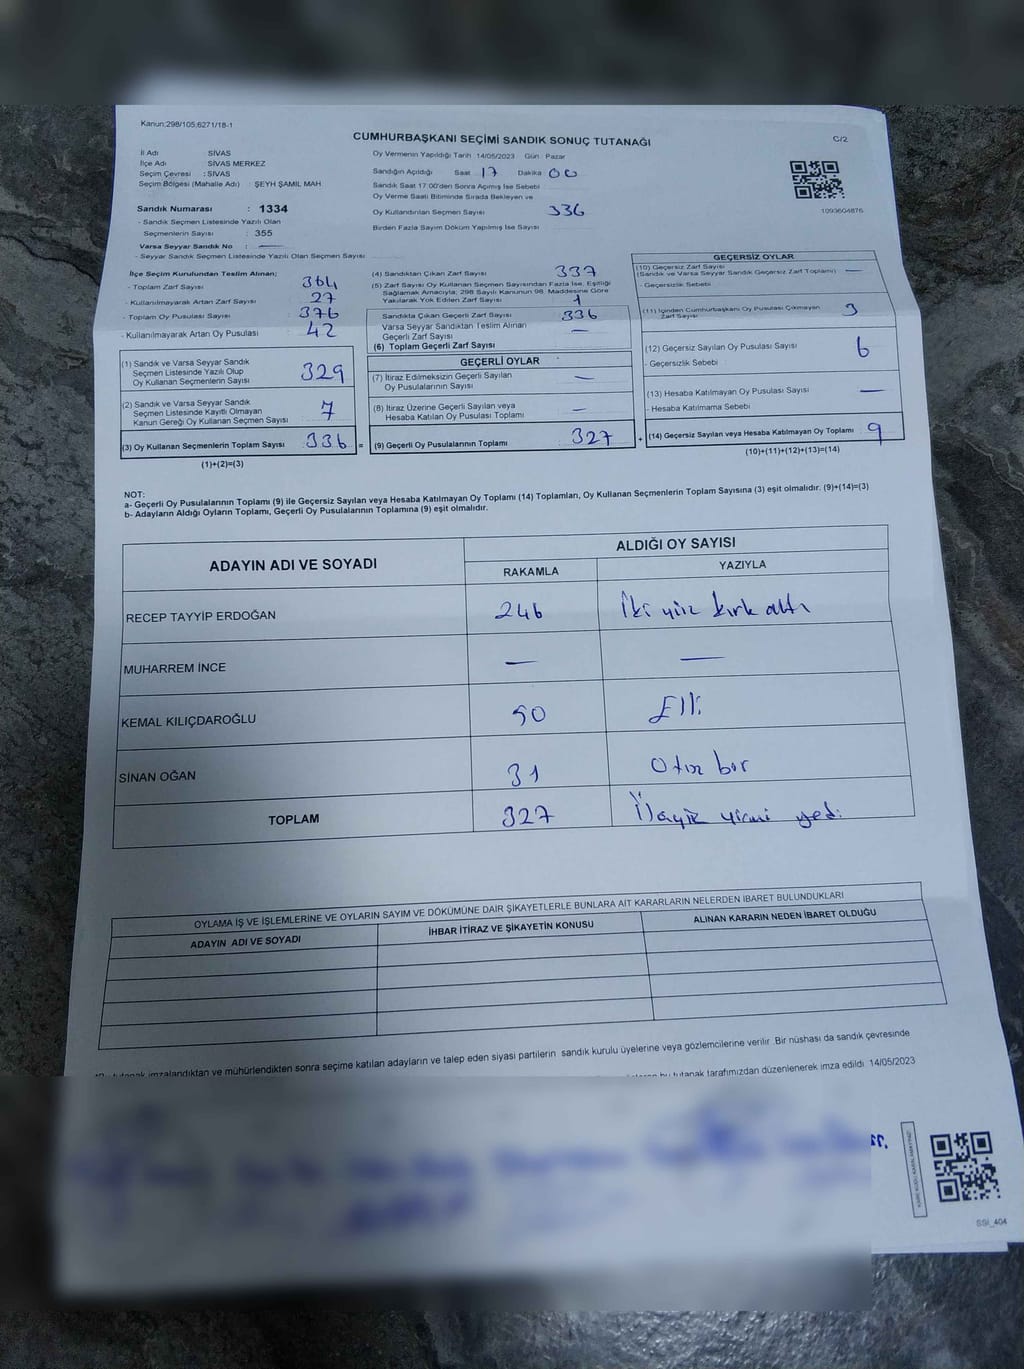 Kanun:298/105;6271/18-1
CUMHURBAŞKANI SEÇİMİ SANDIK SONUÇ TUTANAĞI
C/2
İl Adı : SİVAS
İlçe Adı : SİVAS MERKEZ
Seçim Çevresi : SİVAS
Seçim Bölgesi (Mahalle Adı) : ŞEYH ŞAMİL MAH
Sandık Numarası : 1334
- Sandık Seçmen Listesinde Yazılı Olan
Seçmenlerin Sayısı : 355
Varsa Seyyar Sandık No : —
- Seyyar Sandık Seçmen Listesinde Yazılı Olan Seçmen Sayısı
Oy Vermenin Yapıldığı Tarih 14/05/2023 Gün : Pazar
Sandığın Açıldığı Saat : 17 Dakika : 00
Sandık Saat 17.00'den Sonra Açımış İse Sebebi
Oy Verme Saati Bitiminde Sırada Bekleyen ve
Oy Kullandırılan Seçmen Sayısı 336
Birden Fazla Sayım Döküm Yapılmış İse Sayısı
1093604876
İlçe Seçim Kurulundan Teslim Alınan;
- Toplam Zarf Sayısı : 364
- Kullanılmayarak Artan Zarf Sayısı : 27
- Toplam Oy Pusulası Sayısı : 376
- Kullanılmayarak Artan Oy Pusulası : 42
(1) Sandık ve Varsa Seyyar Sandık
Seçmen Listesinde Yazılı Olup
Oy Kullanan Seçmenlerin Sayısı 329
(2) Sandık ve Varsa Seyyar Sandık
Seçmen Listesinde Kayıtlı Olmayan
Kanun Gereği Oy Kullanan Seçmen Sayısı 7
(3) Oy Kullanan Seçmenlerin Toplam Sayısı 336 =
(1)+(2)=(3)
(4) Sandıktan Çıkan Zarf Sayısı 337
(5) Zarf Sayısı Oy Kullanan Seçmen Sayısından Fazla İse, Eşitliği
Sağlamak Amacıyla; 298 Sayılı Kanunun 98. Maddesine Göre
Yakılarak Yok Edilen Zarf Sayısı 1
Sandıkta Çıkan Geçerli Zarf Sayısı 336
Varsa Seyyar Sandıktan Teslim Alınan
Geçerli Zarf Sayısı —
(6) Toplam Geçerli Zarf Sayısı
GEÇERLİ OYLAR
(7) İtiraz Edilmeksizin Geçerli Sayılan
Oy Pusulalarının Sayısı —
(8) İtiraz Üzerine Geçerli Sayılan veya
Hesaba Katılan Oy Pusulası Toplamı —
(9) Geçerli Oy Pusulalarının Toplamı 327 +
GEÇERSİZ OYLAR
(10) Geçersiz Zarf Sayısı
(Sandık ve Varsa Seyyar Sandık Geçersiz Zarf Toplamı) —
- Geçersizlik Sebebi :
(11) İçinden Cumhurbaşkanı Oy Pusulası Çıkmayan
Zarf Sayısı 3
(12) Geçersiz Sayılan Oy Pusulası Sayısı 6
- Geçersizlik Sebebi :
(13) Hesaba Katılmayan Oy Pusulası Sayısı —
- Hesaba Katılmama Sebebi :
(14) Geçersiz Sayılan veya Hesaba Katılmayan Oy Toplamı 9
(10)+(11)+(12)+(13)=(14)
NOT:
a- Geçerli Oy Pusulalarının Toplamı (9) ile Geçersiz Sayılan veya Hesaba Katılmayan Oy Toplamı (14) Toplamları, Oy Kullanan Seçmenlerin Toplam Sayısına (3) eşit olmalıdır. (9)+(14)=(3)
b- Adayların Aldığı Oyların Toplamı, Geçerli Oy Pusulalarının Toplamına (9) eşit olmalıdır.
ADAYIN ADI VE SOYADI ALDIĞI OY SAYISI
RAKAMLA YAZIYLA
RECEP TAYYİP ERDOĞAN 246 İki yüz kırk altı
MUHARREM İNCE — —
KEMAL KILIÇDAROĞLU 50 Elli
SİNAN OĞAN 31 Otuz bir
TOPLAM 327 yirmi yedi
OYLAMA İŞ VE İŞLEMLERİNE VE OYLARIN SAYIM VE DÖKÜMÜNE DAİR ŞİKAYETLERLE BUNLARA AİT KARARLARIN NELERDEN İBARET BULUNDUKLARI
ADAYIN ADI VE SOYADI İHBAR İTİRAZ VE ŞİKAYETİN KONUSU ALINAN KARARIN NEDEN İBARET OLDUĞU
tutanak imzalandıktan ve mühürlendikten sonra seçime katılan adayların ve talep eden siyasi partilerin sandık kurulu üyelerine veya gözlemcilerine verilir .Bir nüshası da sandık çevresinde
bu tutanak tarafımızdan düzenlenerek imza edildi. 14/05/2023
SSİ_404